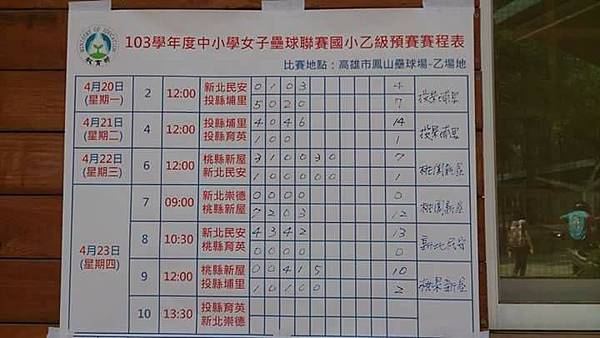 103學年度中小學女子壘球聯賽國小乙級預賽賽程表
比賽地點：高雄市鳳山壘球場-乙場地
4月20日
(星期一)
2 12:00 新北民安 0 1 0 3 4
投縣埔里 5 0 2 0 7 投縣埔里
4月21日
(星期二)
4 12:00 投縣埔里 4 0 4 6 14
投縣育英 1 0 0 1 投縣埔里
4月22日
(星期三)
6 12:00 桃縣新屋 3 1 0 0 3 0 7
新北民安 1 0 0 0 0 0 1 桃園新屋
4月23日
(星期四)
7 09:00 新北崇德 0 0 0 0 0
桃縣新屋 7 2 0 3 12 桃園新屋
8 10:30 新北民安 4 3 4 2 13
桃縣育英 0 0 0 0 0 新北民安
9 12:00 桃縣新屋 0 0 4 1 5 10
投縣埔里 1 0 1 0 0 2 新屋
10 13:30 投縣育英
新北崇德